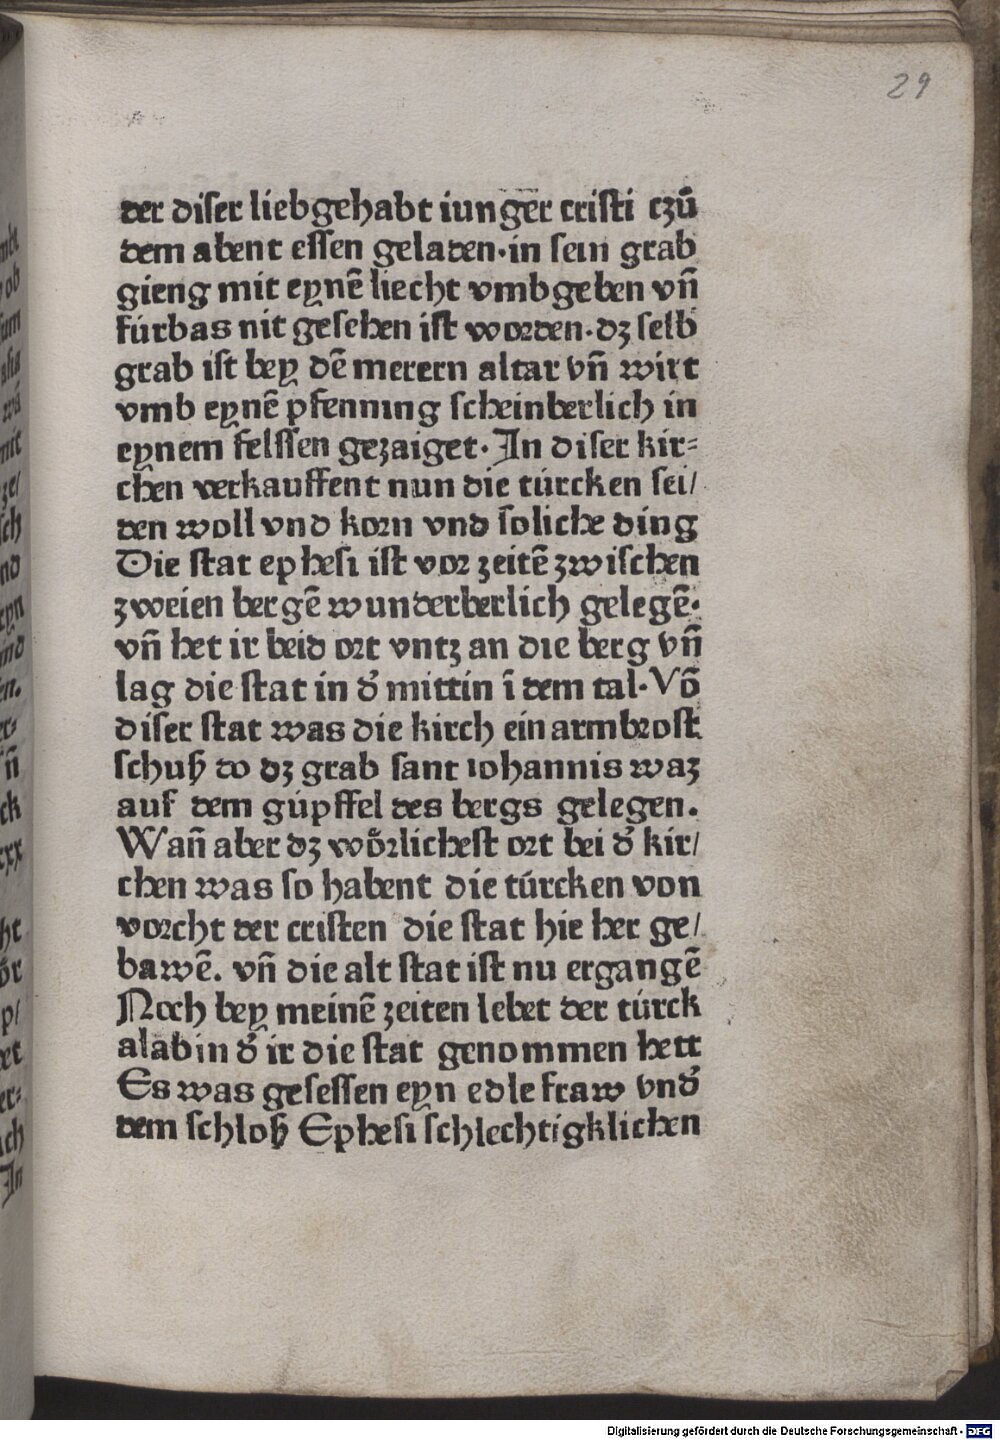 29
der diser liebgehabt iunger cristi czū
dem abent essen geladen·in sein grab
gieng mit eynē liecht vmbgeben vñ
fúrbas nit gesehen ist worden·dʒ selb
grab ist bey dē merern altar vñ wirt
vmb eynē pfenning scheinberlich in
eynem felssen gezaiget· In diser kir⸗
chen verkauffent nun die túrcken sei/
den woll vnd korn vnd soliche ding
Die stat ephesi ist vor zeitē zwischen
zweien bergē wunderberlich gelegē·
vñ het ir beid ort vntz an die berg vñ
lag die stat in d̕ mittin ī dem tal·Vō
diser stat was die kirch ein armbrost
schuß do dʒ grab sant iohannis waʒ
auf dem gúpffel des bergs gelegen.
Wañ aber dʒ wörlichest ort bei d̕ kir/
chen was so habent die túrcken von
vorcht der cristen die stat hie her ge/
bawē. vñ die alt stat ist nu ergangē
Noch bey meinē zeiten lebet der túrck
alabin d̕ ir die stat genommen hett
Es was gesessen eyn edle fraw vnd̕
dem schloß Ephesi schlechtigklichen
Digitalisierung gefördert durch die Deutsche Forschungsgemeinschaft - DFG